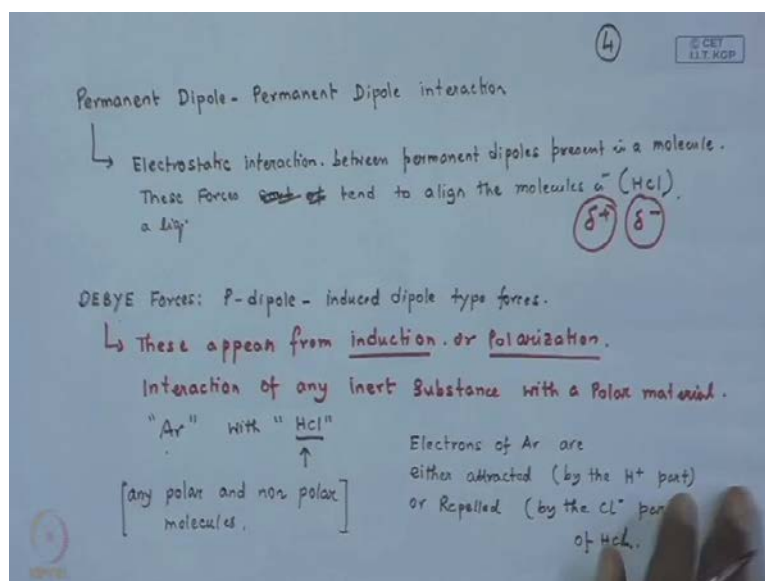 4
© CET
I.I.T. KGP
Permanent Dipole - Permanent Dipole interaction
Electrostatic interaction. between permanent dipoles present in a molecule.
These Forces tend to align the molecules in (HCl).
a liq.
δ+ δ-
DEBYE Forces: P-dipole - induced dipole type forces.
These appear from induction. or Polarization.
Interaction of any inert Substance with a Polar material.
"Ar" with "HCl"
[any polar and non polar
molecules.]
Electrons of Ar are
either attracted (by the H+ part)
or Repelled (by the Cl-
of HCl.